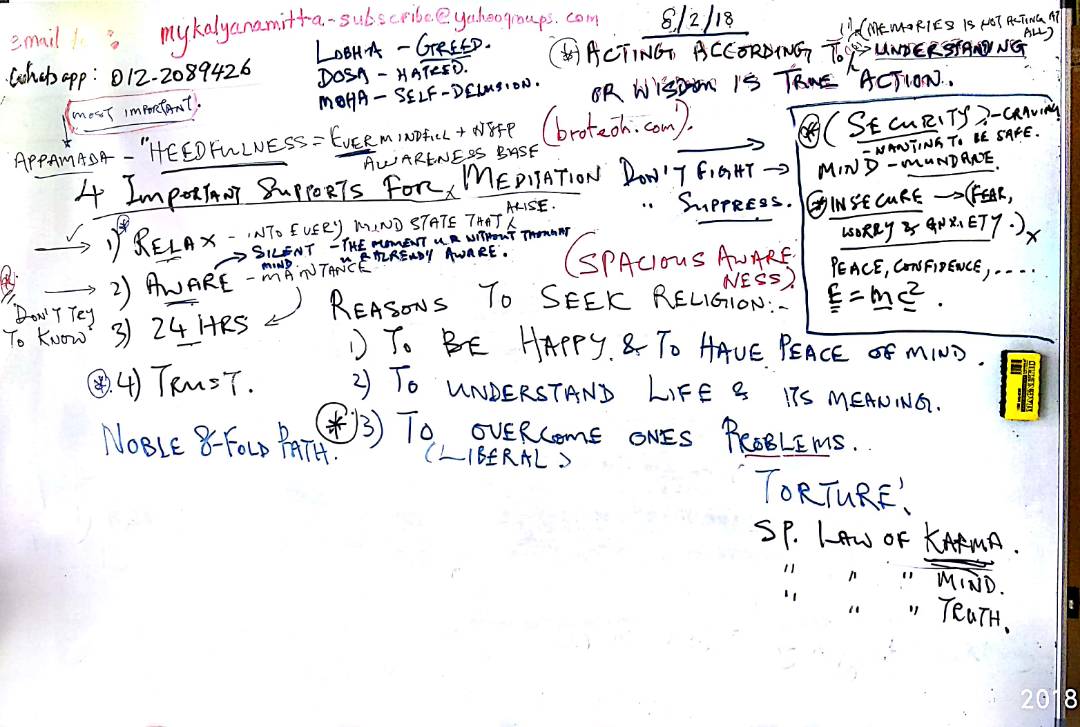 Email : mykalyanamitta-subscribe@yahoogroups.com
8/2/18
Whatsapp: 012-2089426
LOBHA - GREED.
DOSA - HATRED.
MOHA - SELF-DELUSION.
(MEMORIES IS NOT ACTING AT ALL)
* ACTING ACCORDING TO UNDERSTANDING
OR WISDOM IS TRUE ACTION.
(MOST IMPORTANT.
APPAMADA - "HEEDFULNESS = EVERMINDFULL + N8FP
AWARENESS BASE
(broteoh.com).
4 IMPORTANT SUPPORTS FOR MEDITATION
DON'T FIGHT →
" SUPPRESS.
1) RELAX - INTO EVERY MIND STATE THAT
ARISE.
SILENT MIND - THE MOMENT U R WITHOUT THOUGHT
U R ALREADY AWARE.
2) AWARE - MAINTANCE
(SPACIOUS AWARE
NESS)
DON'T TRY
TO KNOW
3) 24 HRS
* 4) TRUST.
* (SECURITY) - CRAVING
- WANTING TO BE SAFE.
MIND - MUNDANE.
* INSECURE → (FEAR,
WORRY & ANXIETY.) x
PEACE, CONFIDENCE, ....
E = mc².
REASONS TO SEEK RELIGION:-
1) TO BE HAPPY & TO HAVE PEACE OF MIND.
2) TO UNDERSTAND LIFE & ITS MEANING.
NOBLE 8-FOLD PATH.
* 3) TO OVERCOME ONES PROBLEMS..
(LIBERAL)
TORTURE!
SP. LAW OF KARMA.
" " " MIND.
" " " TRUTH.
2018